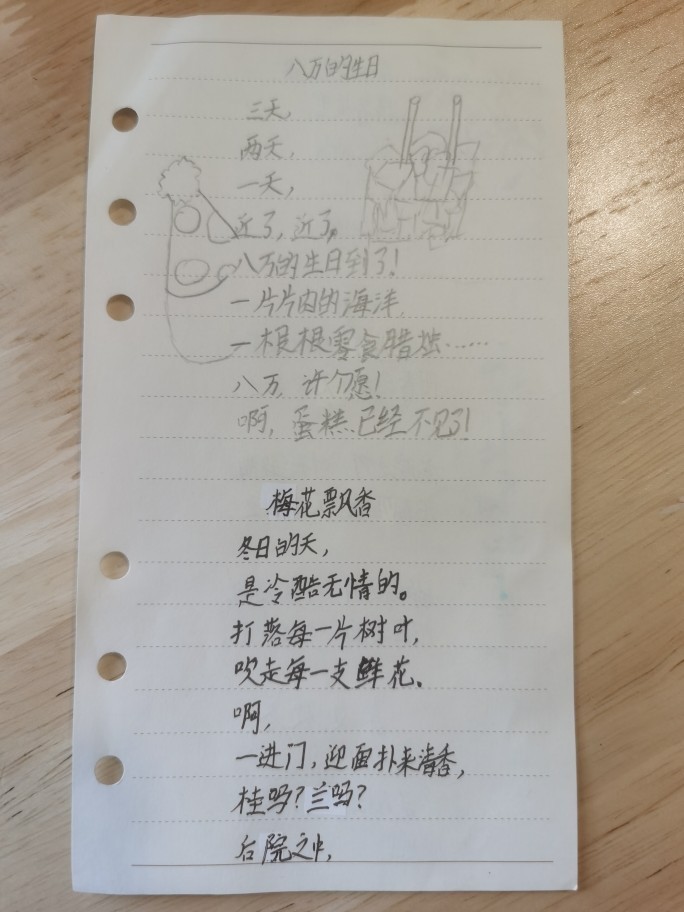 八万的生日
三天,
两天,
一天,
近了,近了。
八万的生日到了!
一片片肉的海洋,
一根根零食腊烛……
八万,许个愿!
啊,蛋糕已经不见了!
梅花飘香
冬日的天,
是冷酷无情的。
打落每一片树叶,
吹走每一支鲜花、
啊,
一进门,迎面扑来清香,
桂吗?兰吗?
后院之中,